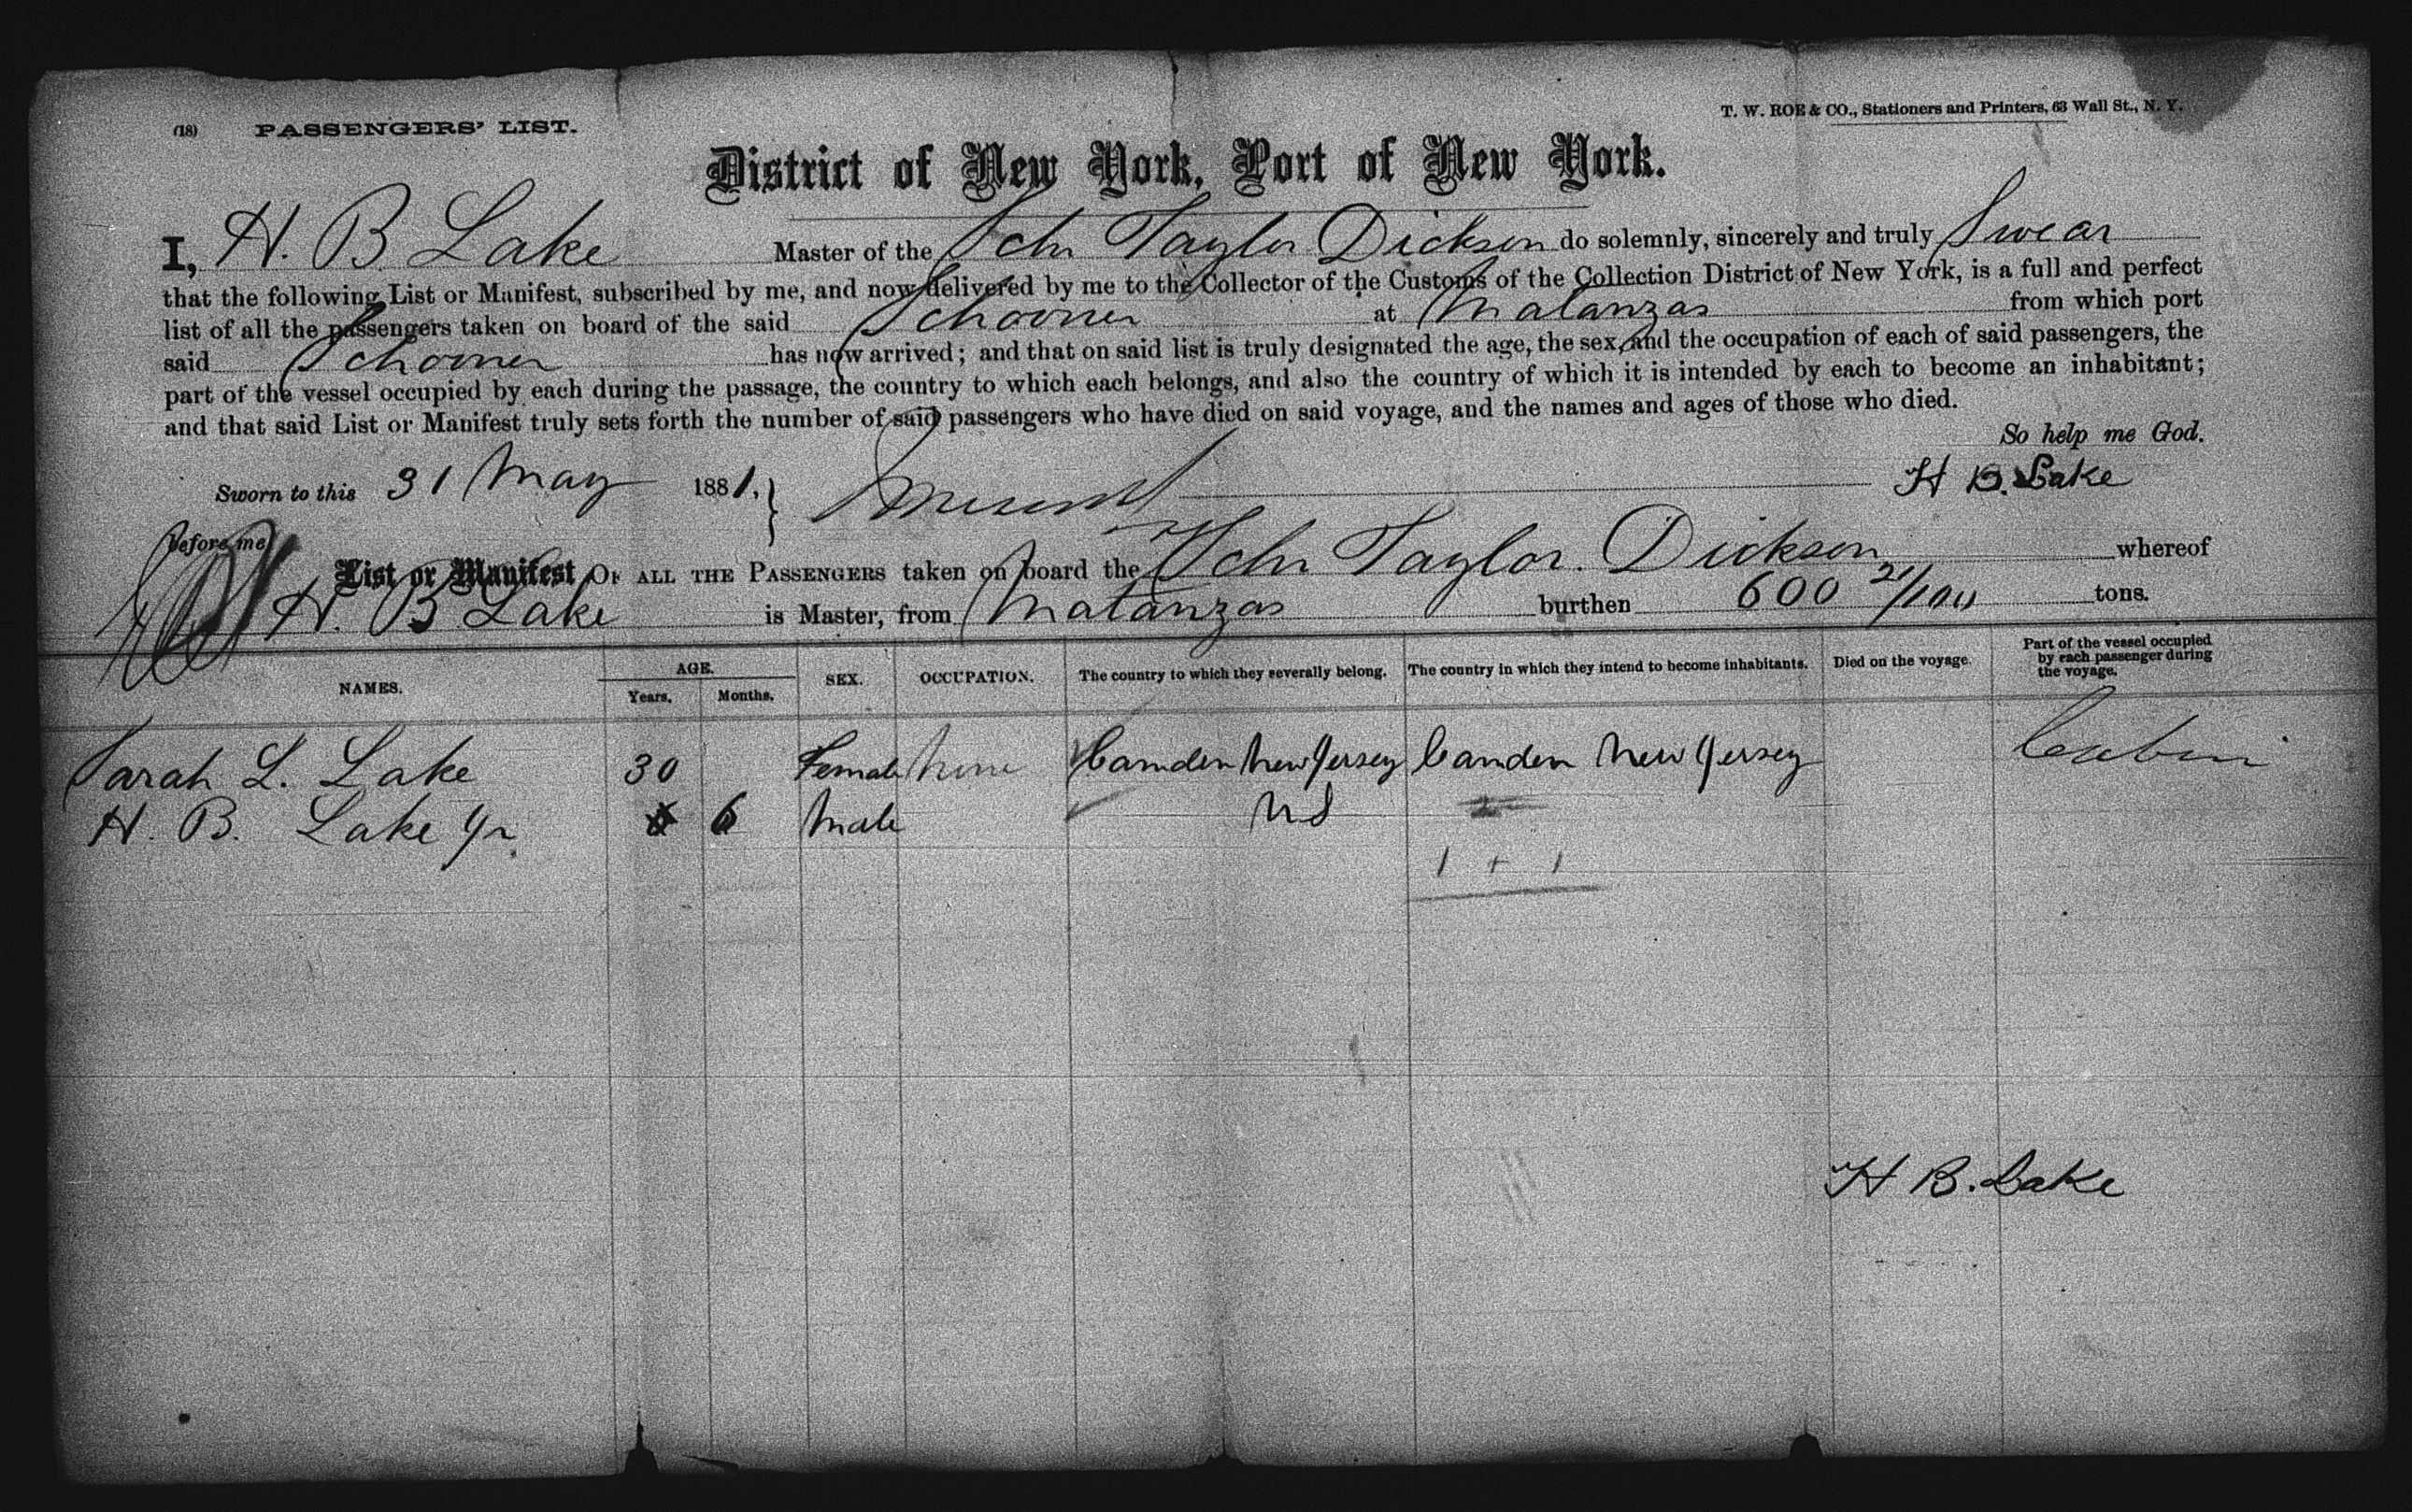 (18) PASSENGERS' LIST.
T. W. ROE & CO., Stationers and Printers, 63 Wall St., N. Y.
District of New York, Port of New York.
I, H. B Lake Master of the Schr Taylor Dickson do solemnly, sincerely and truly Swear
that the following List or Manifest, subscribed by me, and now delivered by me to the Collector of the Customs of the Collection District of New York, is a full and perfect
list of all the passengers taken on board of the said Schooner at Matanzas from which port
said Schooner has now arrived; and that on said list is truly designated the age, the sex, and the occupation of each of said passengers, the
part of the vessel occupied by each during the passage, the country to which each belongs, and also the country of which it is intended by each to become an inhabitant;
and that said List or Manifest truly sets forth the number of said passengers who have died on said voyage, and the names and ages of those who died.
So help me God.
Sworn to this 31 May 1881, H B. Lake
before me
List or Manifest OF ALL THE PASSENGERS taken on board the Schr Taylor. Dickson whereof
H. B Lake is Master, from Matanzas burthen 600 21/100 tons.
NAMES. AGE. Years. Months. SEX. OCCUPATION. The country to which they severally belong. The country in which they intend to become inhabitants. Died on the voyage. Part of the vessel occupied by each passenger during the voyage.
Sarah L. Lake 30 Female None Camden New Jersey Camden New Jersey Cabin
H. B. Lake Jr. 6 Male
1 + 1
H B. Lake